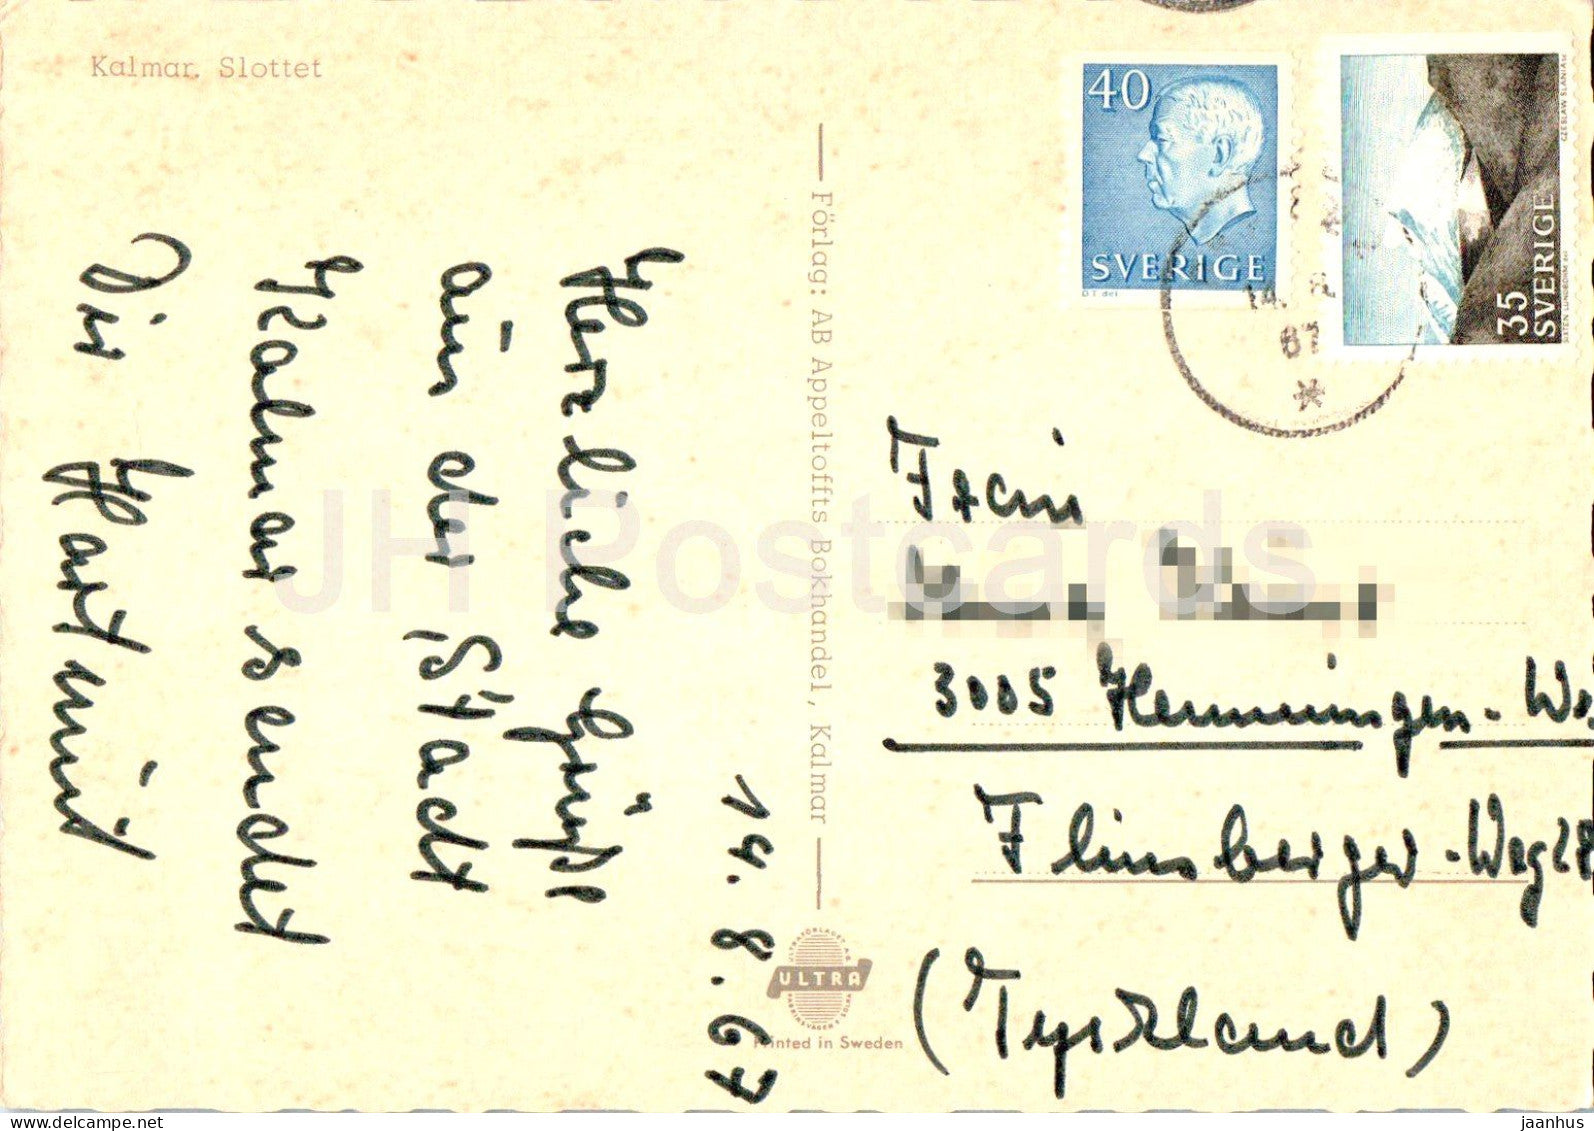 Kalmar. Slottet
14.8.67
Herzliche Grüße
aus der Stadt
Kalmar sendet
Dir Hartmut
Förlag: AB Appeltoffts Bokhandel, Kalmar
ULTRA
Printed in Sweden
40
SVERIGE
35
SVERIGE
CZESLAW SLANIA SC
14.
67
Frau
3005 Hemmingen-
Flinsberger-Weg 28
(Tyskland)
JH Postcards
delcampe.net
jaanhus